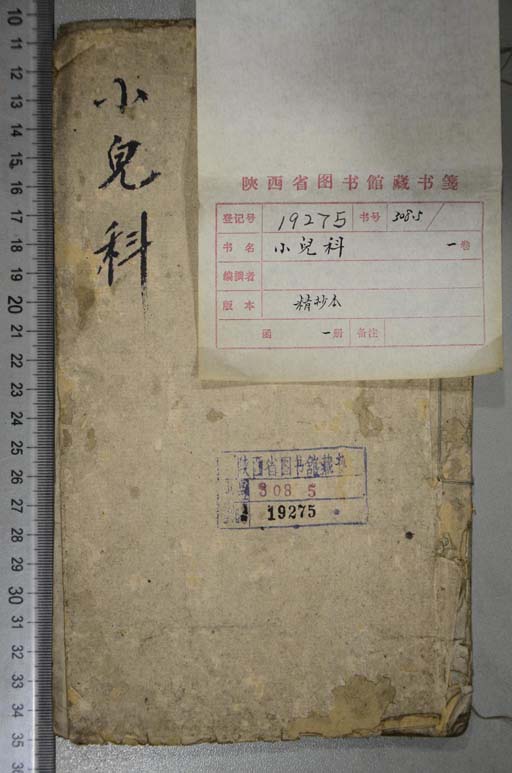 小兒科
陕西省图书館藏书箋
登记号 19275 书号 308·5/
书名 小兒科 一卷
编撰者
版本 精抄本
函 一册 备注
陕西省图书館藏书
308 5
19275
10
11
12
13
14
15
16
17
18
19
20
21
22
23
24
25
26
27
28
29
30
31
32
33
34
35
36